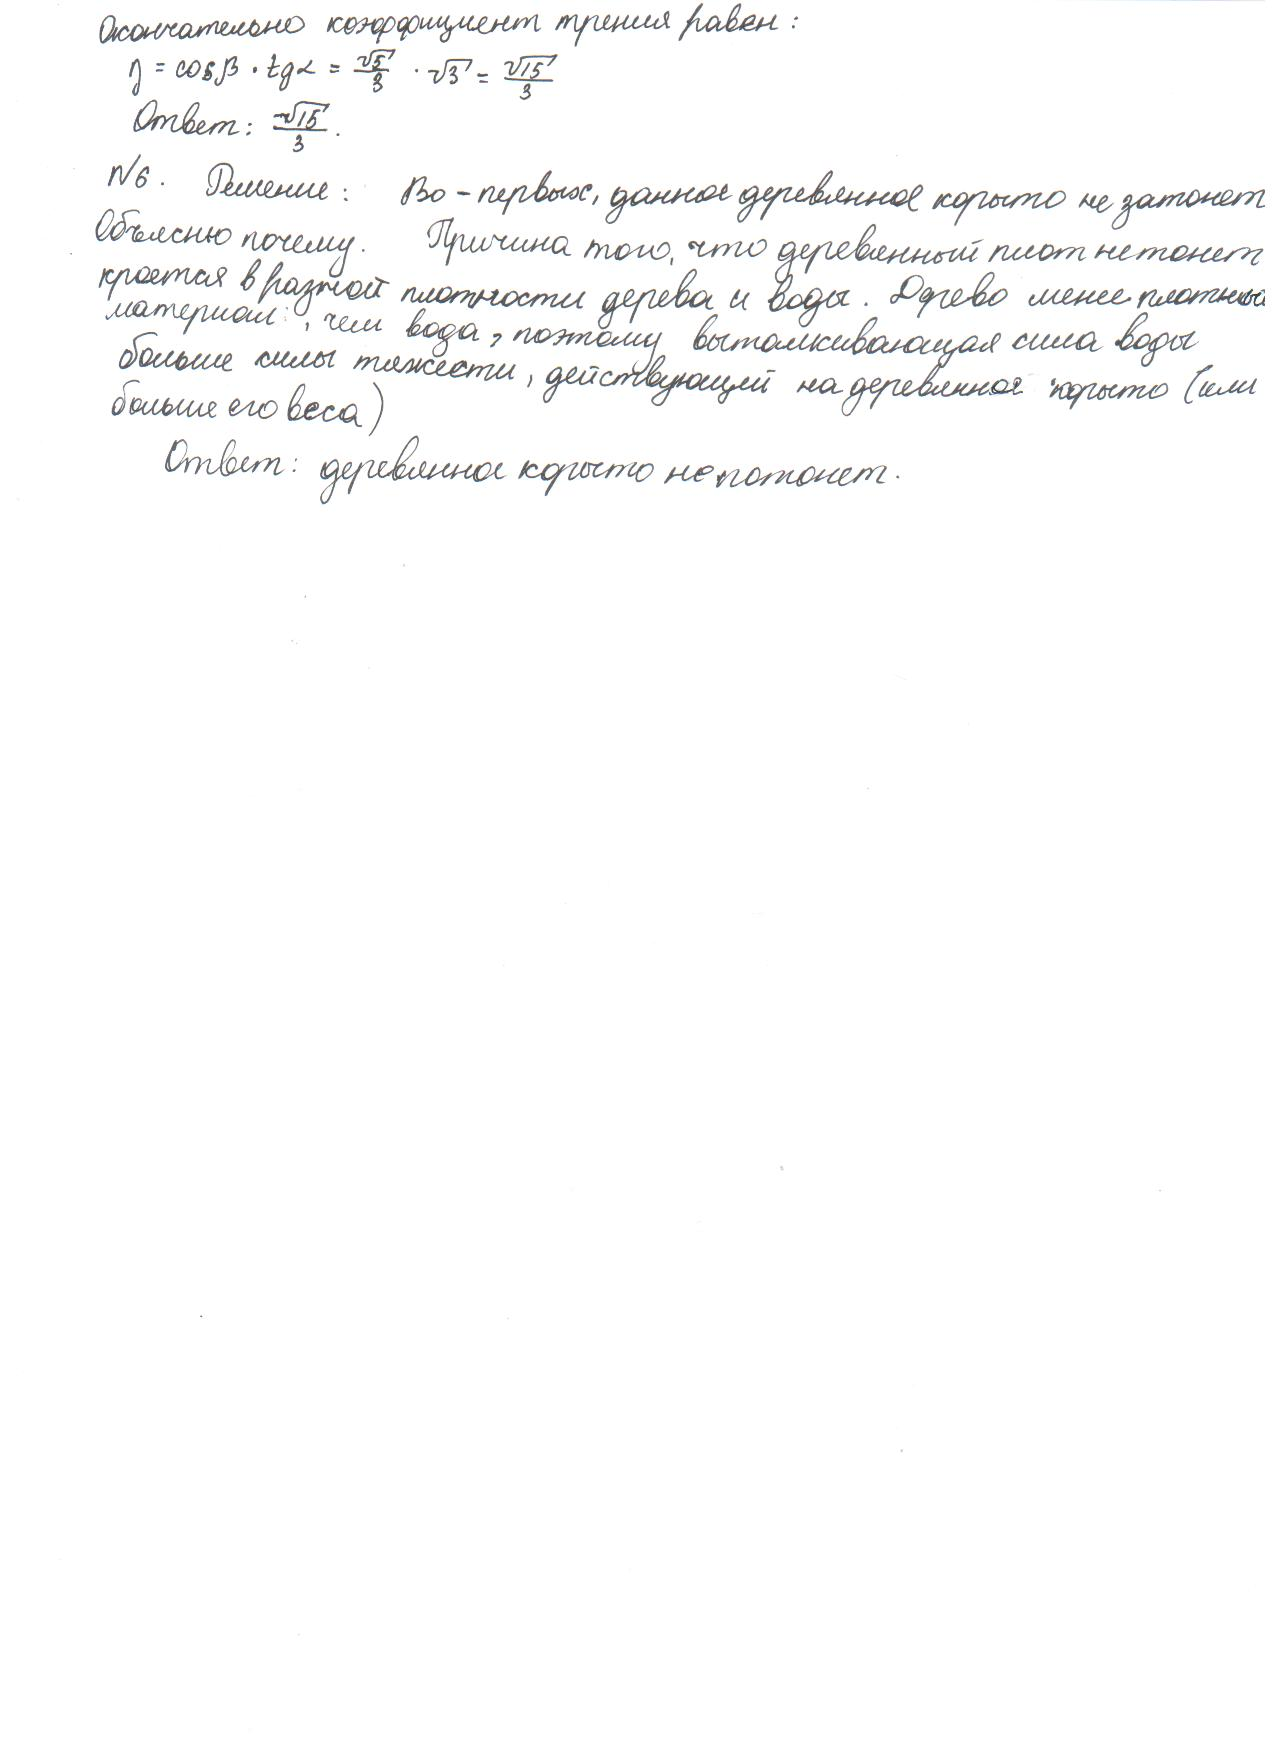 Окончательно коэффициент трения равен:
η = cosβ · tgα = √5/3 · √3 = √15/3
Ответ: √15/3.
N6. Решение: Во-первых, данное деревянное корыто не затонет
Объясню почему. Причина того, что деревянный плот не тонет
кроется в разной плотности дерева и воды. Дерево менее плотный
материал, чем вода, поэтому выталкивающая сила воды
больше силы тяжести, действующей на деревянное корыто (или
больше его веса)
Ответ: деревянное корыто не потонет.